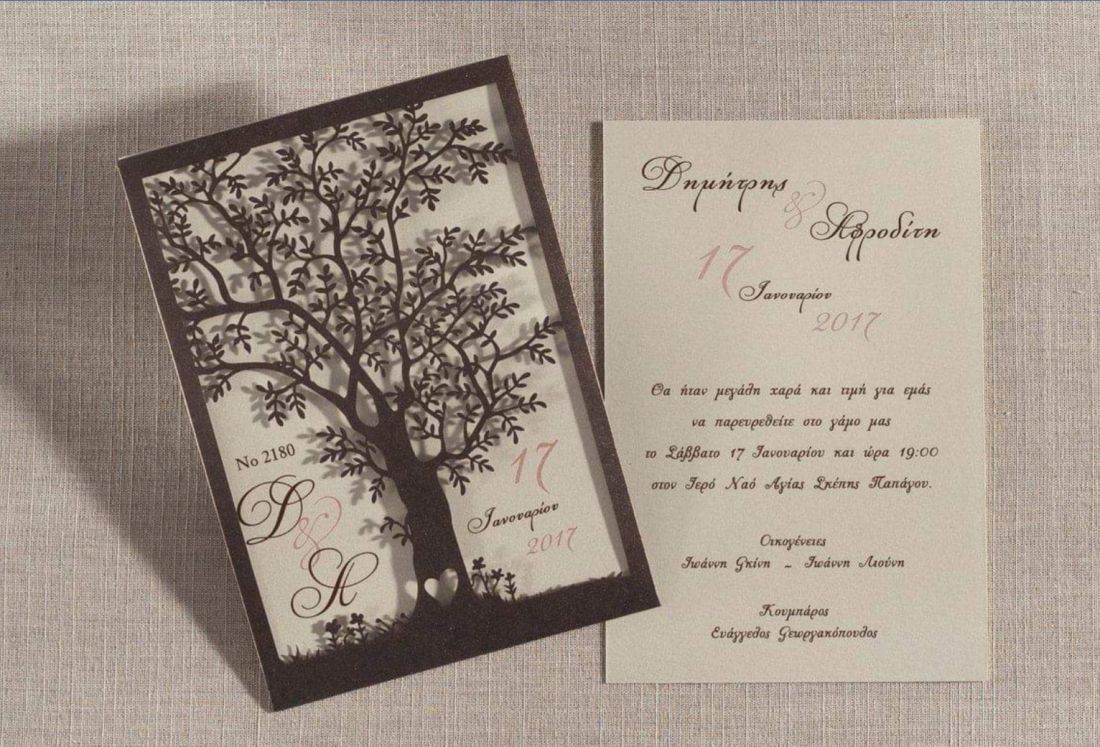 No 2180
Δ
&
Α
17
Ιανουαρίου
2017
Δημήτρης
&
Αφροδίτη
17
Ιανουαρίου
2017
Θα ήταν μεγάλη χαρά και τιμή για εμάς
να παρευρεθείτε στο γάμο μας
το Σάββατο 17 Ιανουαρίου και ώρα 19:00
στον Ιερό Ναό Αγίας Σκέπης Παπάγου.
Οικογένειες
Ιωάννη Γκίνη – Ιωάννη Λιούνη
Κουμπάρος
Ευάγγελος Γεωργακόπουλος